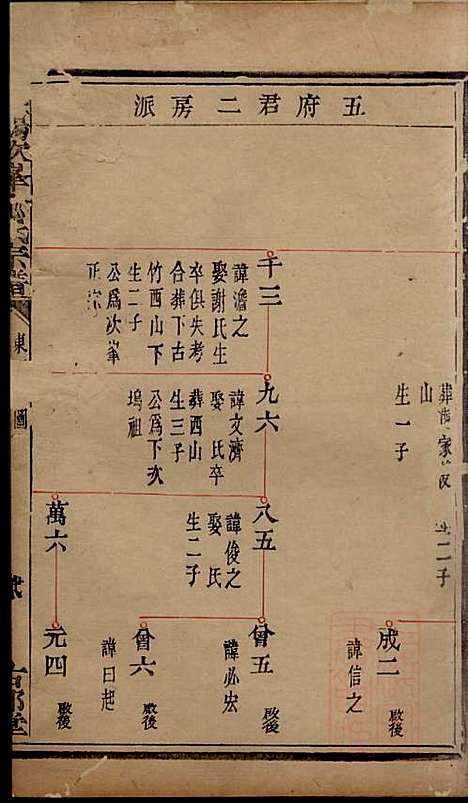 五府君二房派
山
生一子
生二子
成二
諱信之
啟後
千三
諱澹之
娶謝氏生
卒俱失考
合葬下古
竹西山下
生二子
公爲次峯
正宗
九六
諱文濟
娶 氏卒
葬西山
生三子
公爲下次
塢祖
八五
諱俊之
娶 氏
生二子
曾五
諱必宏
啟後
曾六
諱曰起
啟後
萬六
元四
啟後
東
圖